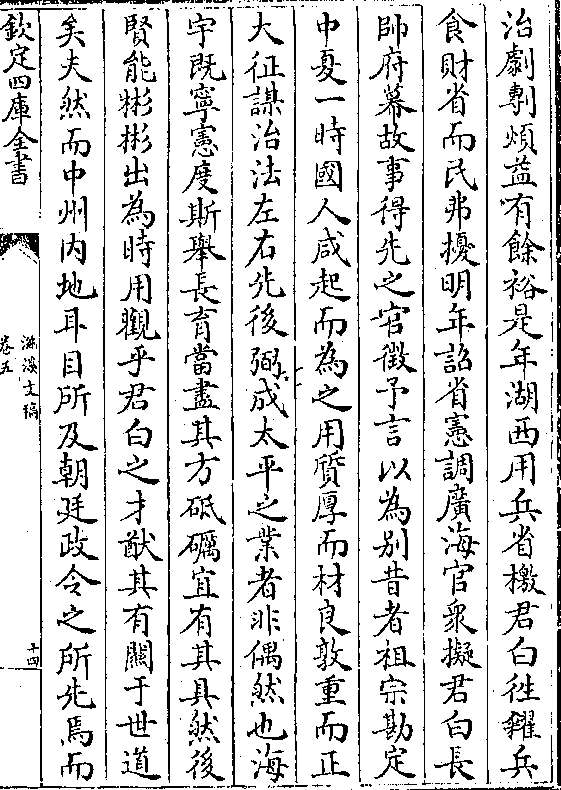 治劇剸煩益有餘裕是年湖西用兵省檄君白徃糴兵
食財省而民弗擾明年詔省憲調廣海官衆擬君白長
帥府幕故事得先之官徵予言以為别昔者祖宗勘定
中夏一時國人咸起而為之用質厚而材良敦重而正
大征謀治法左右先後弼成太平之業者非偶然也海
宇既寧憲度斯舉長育當盡其方砥礪宜有其具然後
賢能彬彬出為時用觀乎君白之才猷其有關于世道
矣夫然而中州内地耳目所及朝廷政令之所先焉而
欽定四庫全書
文稿
卷五
十四